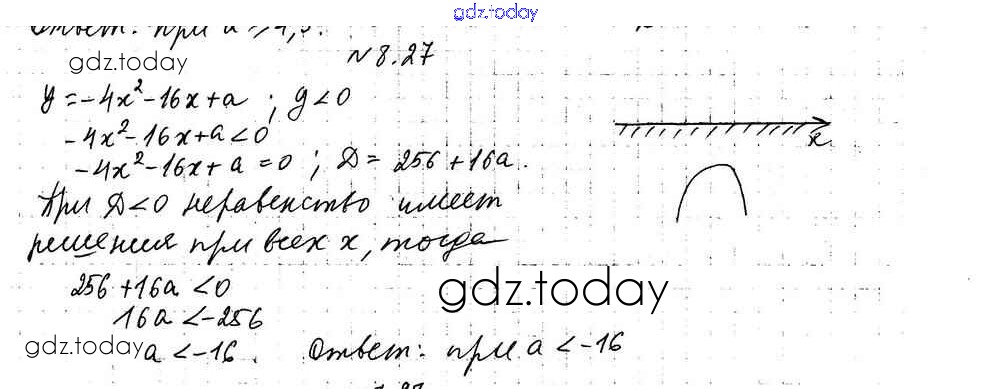 gdz.today
Ответ: при a
gdz.today
№ 8.27
y = -4x² - 16x + a ; y < 0
-4x² - 16x + a < 0
-4x² - 16x + a = 0 ; D = 256 + 16a.
x
При D < 0 неравенство имеет
решения при всех x, тогда
256 + 16a < 0
gdz.today
16a < -256
gdz.today
a < -16. Ответ: при a < -16